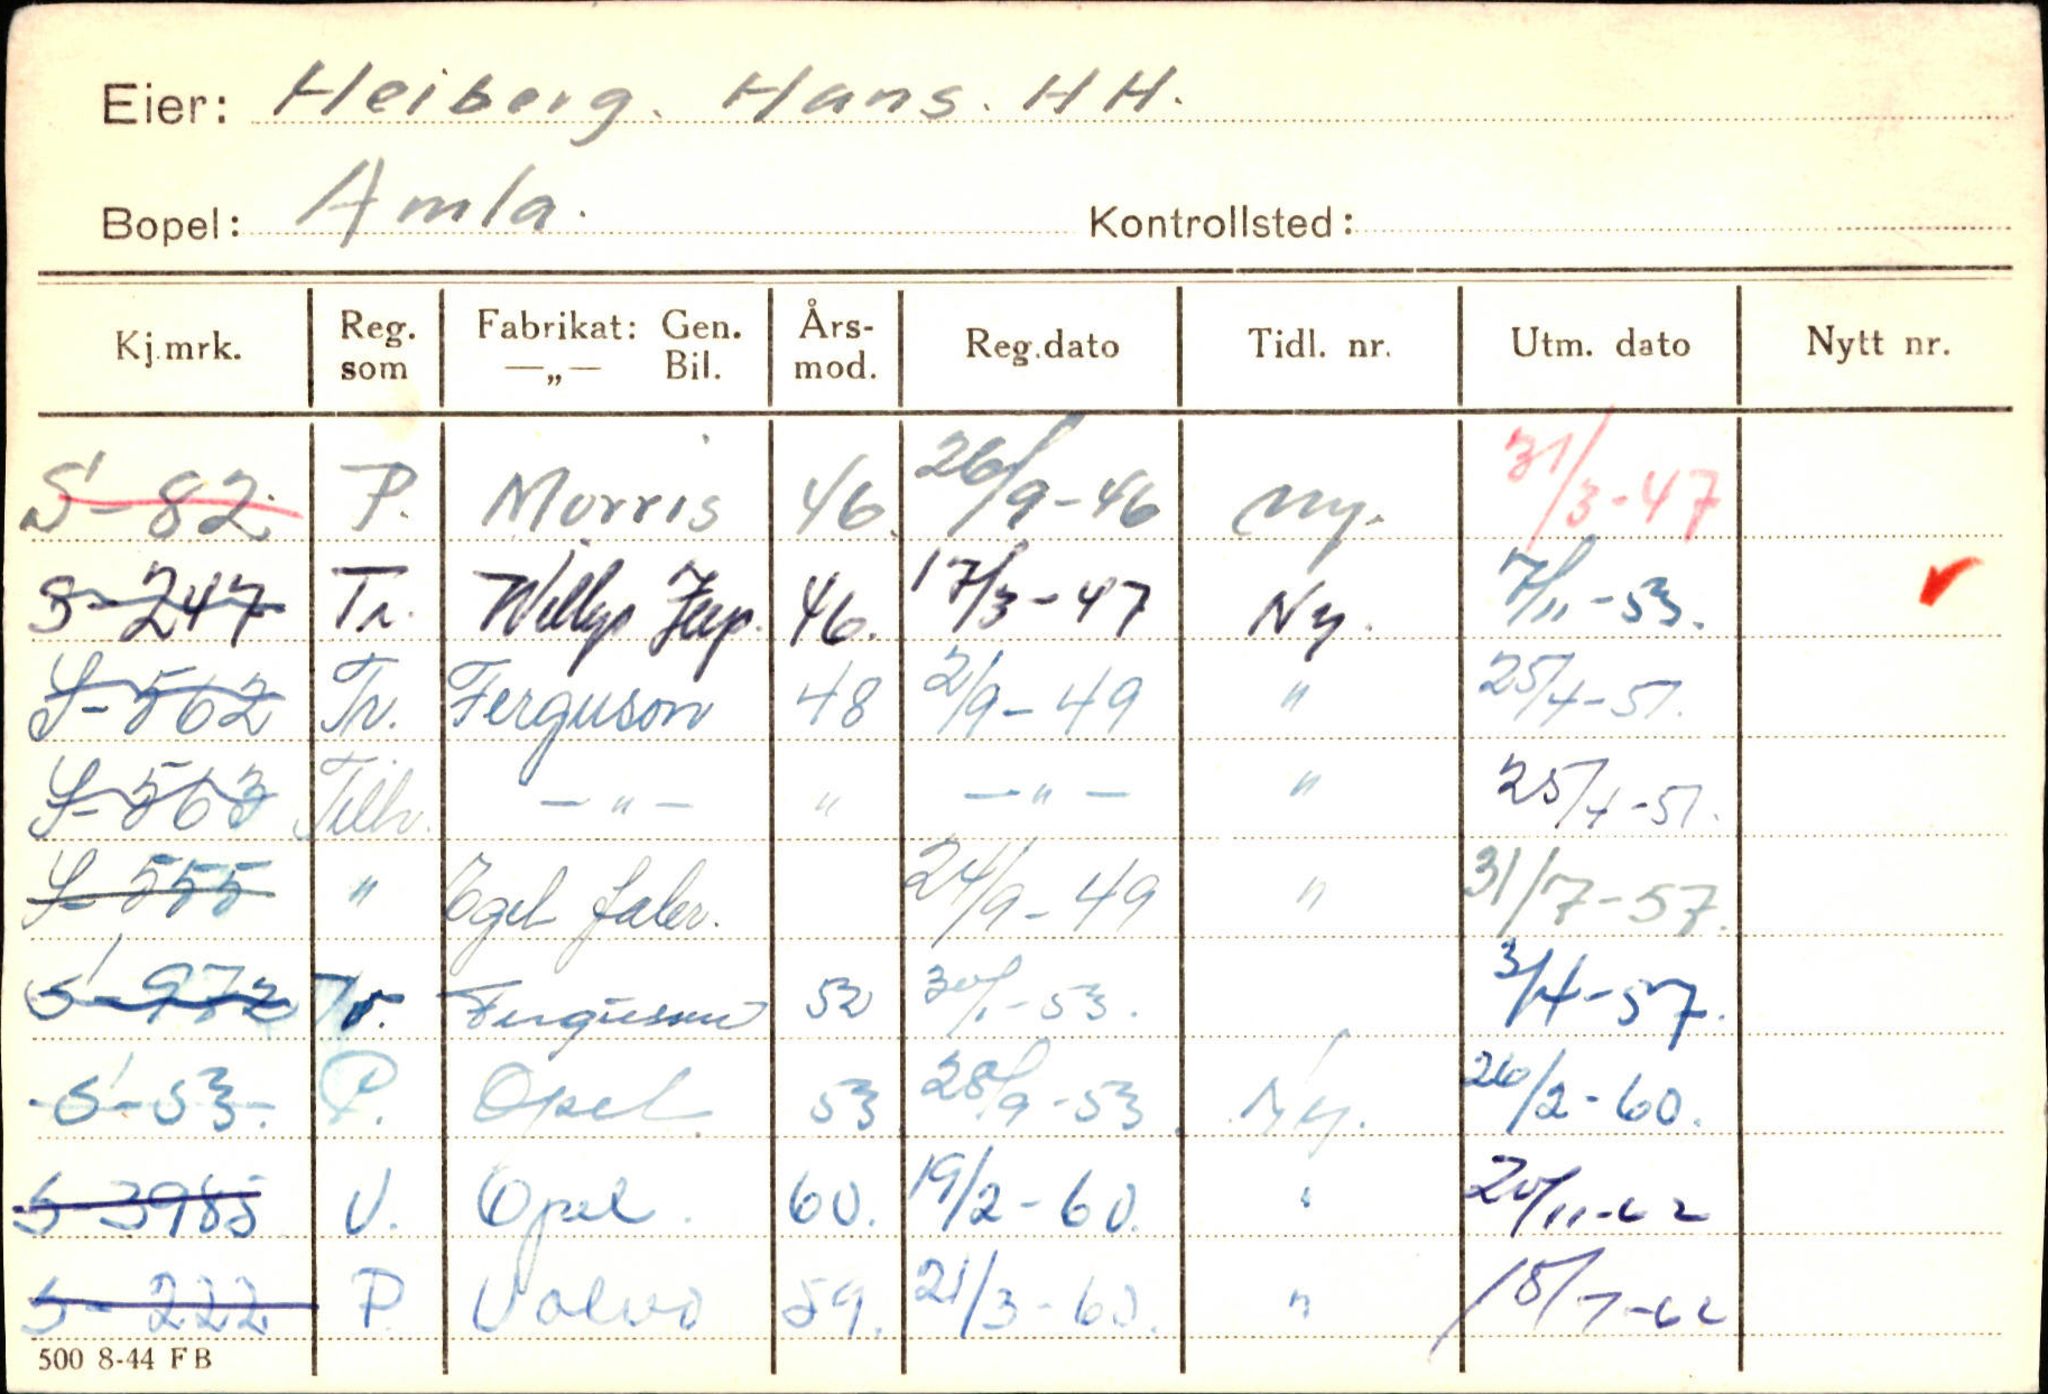 Eier: Heiberg. Hans. H H.
Bopel: Amla. Kontrollsted:
Kj.mrk. Reg. som Fabrikat: Gen. —„— Bil. Års-mod. Reg.dato Tidl. nr. Utm. dato Nytt nr.
S-82 P. Morris 46. 26/9-46 Ny. 31/3-47
S-247 Tr. Willys Jeep. 46. 17/3-47 Ny. 7/11-53.
S-562 Tr. Ferguson 48 2/9-49 " 25/4-51.
S-563 Tilh. —"— " —"— " 25/4-51.
S-555 " Egel fabr. 24/9-49 " 31/7-57.
S-972 Tr. Ferguson 52 30/1-53. 3/4-57.
S-53. P. Opel. 53 28/9-53. Ny. 26/2-60.
S-3985 V. Opel. 60. 19/2-60. " 20/11-62
S-222 P. Volvo 59. 21/3-60. " 18/7-62
500 8-44 F B